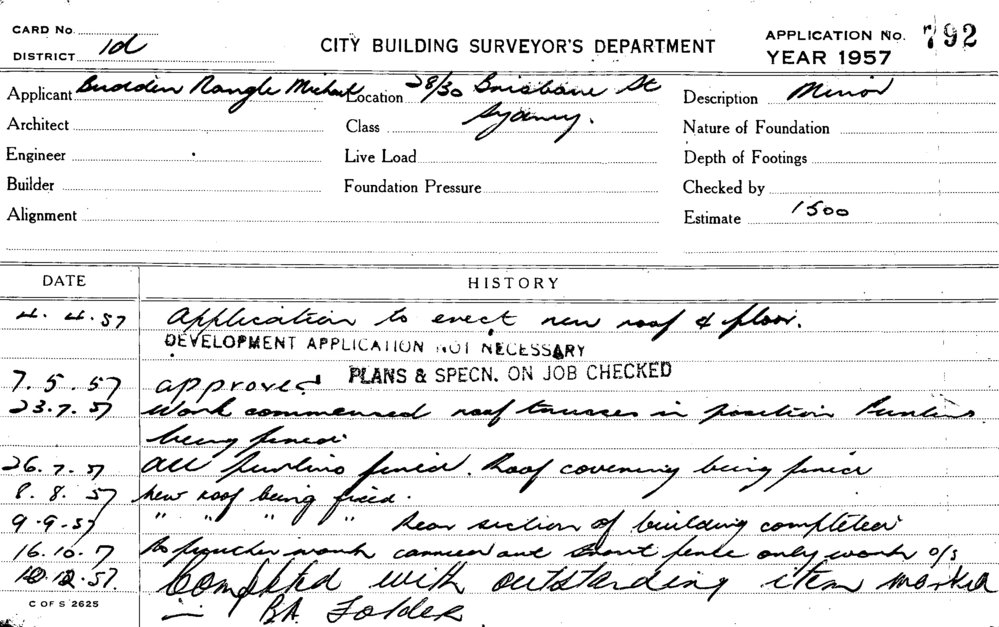 CARD No.
DISTRICT 1d
CITY BUILDING SURVEYOR'S DEPARTMENT
APPLICATION No. 792
YEAR 1957
Applicant Budden Nangle Michael
Location 28/30 Brisbane St
Sydney.
Description Minor
Architect
Class
Nature of Foundation
Engineer
Live Load
Depth of Footings
Builder
Foundation Pressure
Checked by
Alignment
Estimate 1500
DATE HISTORY
4. 4. 57 Application to erect new roof & floor.
DEVELOPMENT APPLICATION NOT NECESSARY
7. 5. 57 approved PLANS & SPECN. ON JOB CHECKED
23. 7. 57 Work commenced roof trusses in position Purlins
being fixed.
26. 7. 57 All purlins fixed. Roof covering being fixed
8. 8. 57 New roof being fixed.
9. 9. 57 " " " " Rear section of building completed
16. 10. 7 No further work carried out front fence only work o/s
12. 12. 57. Completed with outstanding item marked
in BA. Folder
C OF S 2625